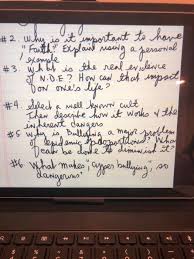 #2. Why is it important to have
"Faith" Explain using a personal
example
#3. What is the real evidence
of N.D.E? How can that impact
on one's life?
#4. Select a well known cult
Then describe how it works & the
inherent dangers
#5 Why is Bullying a major problem
of epidemic proportions? What
can be done to diminish it?
#6. What makes, "cyber bullying", so
dangerous